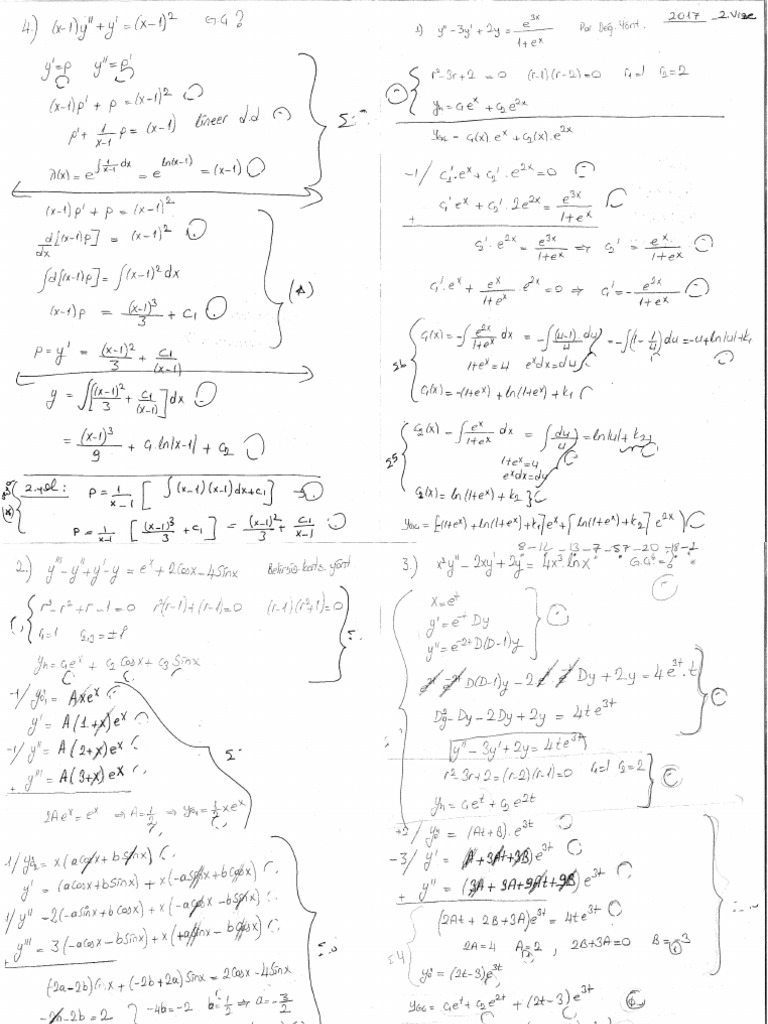 4.) (x-1)y'' + y' = (x-1)² G.G?
y' = p y'' = p'
(x-1)p' + p = (x-1)²
p' + 1/(x-1) p = (x-1) lineer d.d
λ(x) = e^∫1/(x-1) dx = e^ln(x-1) = (x-1)
(x-1)p' + p = (x-1)²
d/dx [(x-1)p] = (x-1)²
∫d[(x-1)p] = ∫(x-1)² dx
(x-1)p = (x-1)³/3 + c₁
p = y' = (x-1)²/3 + c₁/(x-1)
y = ∫[(x-1)²/3 + c₁/(x-1)] dx
= (x-1)³/9 + c₁ ln|x-1| + c₂
2.yol: p = 1/(x-1) [ ∫(x-1)(x-1)dx + c₁ ]
p = 1/(x-1) [ (x-1)³/3 + c₁ ] = (x-1)²/3 + c₁/(x-1)
2017 2.Vize
1) y'' - 3y' + 2y = e^3x/(1+e^x) Par. Değ. Yönt.
r² - 3r + 2 = 0 (r-1)(r-2) = 0 r₁=1 r₂=2
yh = c₁e^x + c₂e^2x
yGG = c₁(x).e^x + c₂(x).e^2x
-1/ c₁'.e^x + c₂'.e^2x = 0
+ c₁'e^x + c₂'.2e^2x = e^3x/(1+e^x)
c₂'.e^2x = e^3x/(1+e^x) ⇒ c₂' = e^x/(1+e^x)
c₁'.e^x + e^x/(1+e^x) . e^2x = 0 ⇒ c₁' = -e^2x/(1+e^x)
c₁(x) = -∫e^2x/(1+e^x) dx = -∫(u-1)/u du = -∫(1 - 1/u)du = -u + ln|u| + k₁
1+e^x = u e^x dx = du
c₁(x) = -(1+e^x) + ln(1+e^x) + k₁
c₂(x) - ∫e^x/(1+e^x) dx = ∫du/u = ln|u| + k₂
1+e^x = u
e^x dx = du
c₂(x) = ln(1+e^x) + k₂
yGG = [-(1+e^x) + ln(1+e^x) + k₁]e^x + [ln(1+e^x) + k₂] e^2x
2.) y''' - y'' + y' - y = e^x + 2cosx - 4sinx Belirsiz kats. yönt
r³ - r² + r - 1 = 0 r²(r-1) + (r-1) = 0 (r-1)(r²+1) = 0
yh = c₁e^x + c₂ cosx + c₃ sinx
-1/ yö₁ = Axe^x
y' = A(1+x)e^x
-1/ y'' = A(2+x)e^x
+ y''' = A(3+x)e^x
2Ae^x = e^x ⇒ A = 1/2 ⇒ yö₁ = 1/2 xe^x
-1/ yö₂ = x(acosx + bsinx)
y' = (acosx + bsinx) + x(-asinx + bcosx)
-1/ y'' = 2(-asinx + bcosx) + x(-acosx - bsinx)
+ y''' = 3(-acosx - bsinx) + x(+asinx - bcosx)
(-2a-2b)cosx + (-2b+2a)sinx = 2cosx - 4sinx
-2a-2b = 2 -4b = -2 b = 1/2 ⇒ a = -3/2
8-12-13-7-57-20-18-2
3.) x²y'' - 2xy' + 2y = 4x³ lnx G.G = ?
x = e^t
y' = e^-t Dy
y'' = e^-2t D(D-1)y
D(D-1)y - 2 Dy + 2y = 4e^3t . t
D²y - Dy - 2Dy + 2y = 4te^3t
y'' - 3y' + 2y = 4te^3t
r² - 3r + 2 = (r-2)(r-1) = 0 r₁=1 r₂=2
yh = c₁e^t + c₂e^2t
+2/ yö = (At+B).e^3t
-3/ y' = (A+3At+3B)e^3t
+ y'' = (3A+3A+9At+9B)e^3t
(2At + 2B + 3A)e^3t = 4te^3t
2A = 4 A = 2 , 2B + 3A = 0 B = -3
yö = (2t-3)e^3t
yGG = c₁e^t + c₂e^2t + (2t-3)e^3t